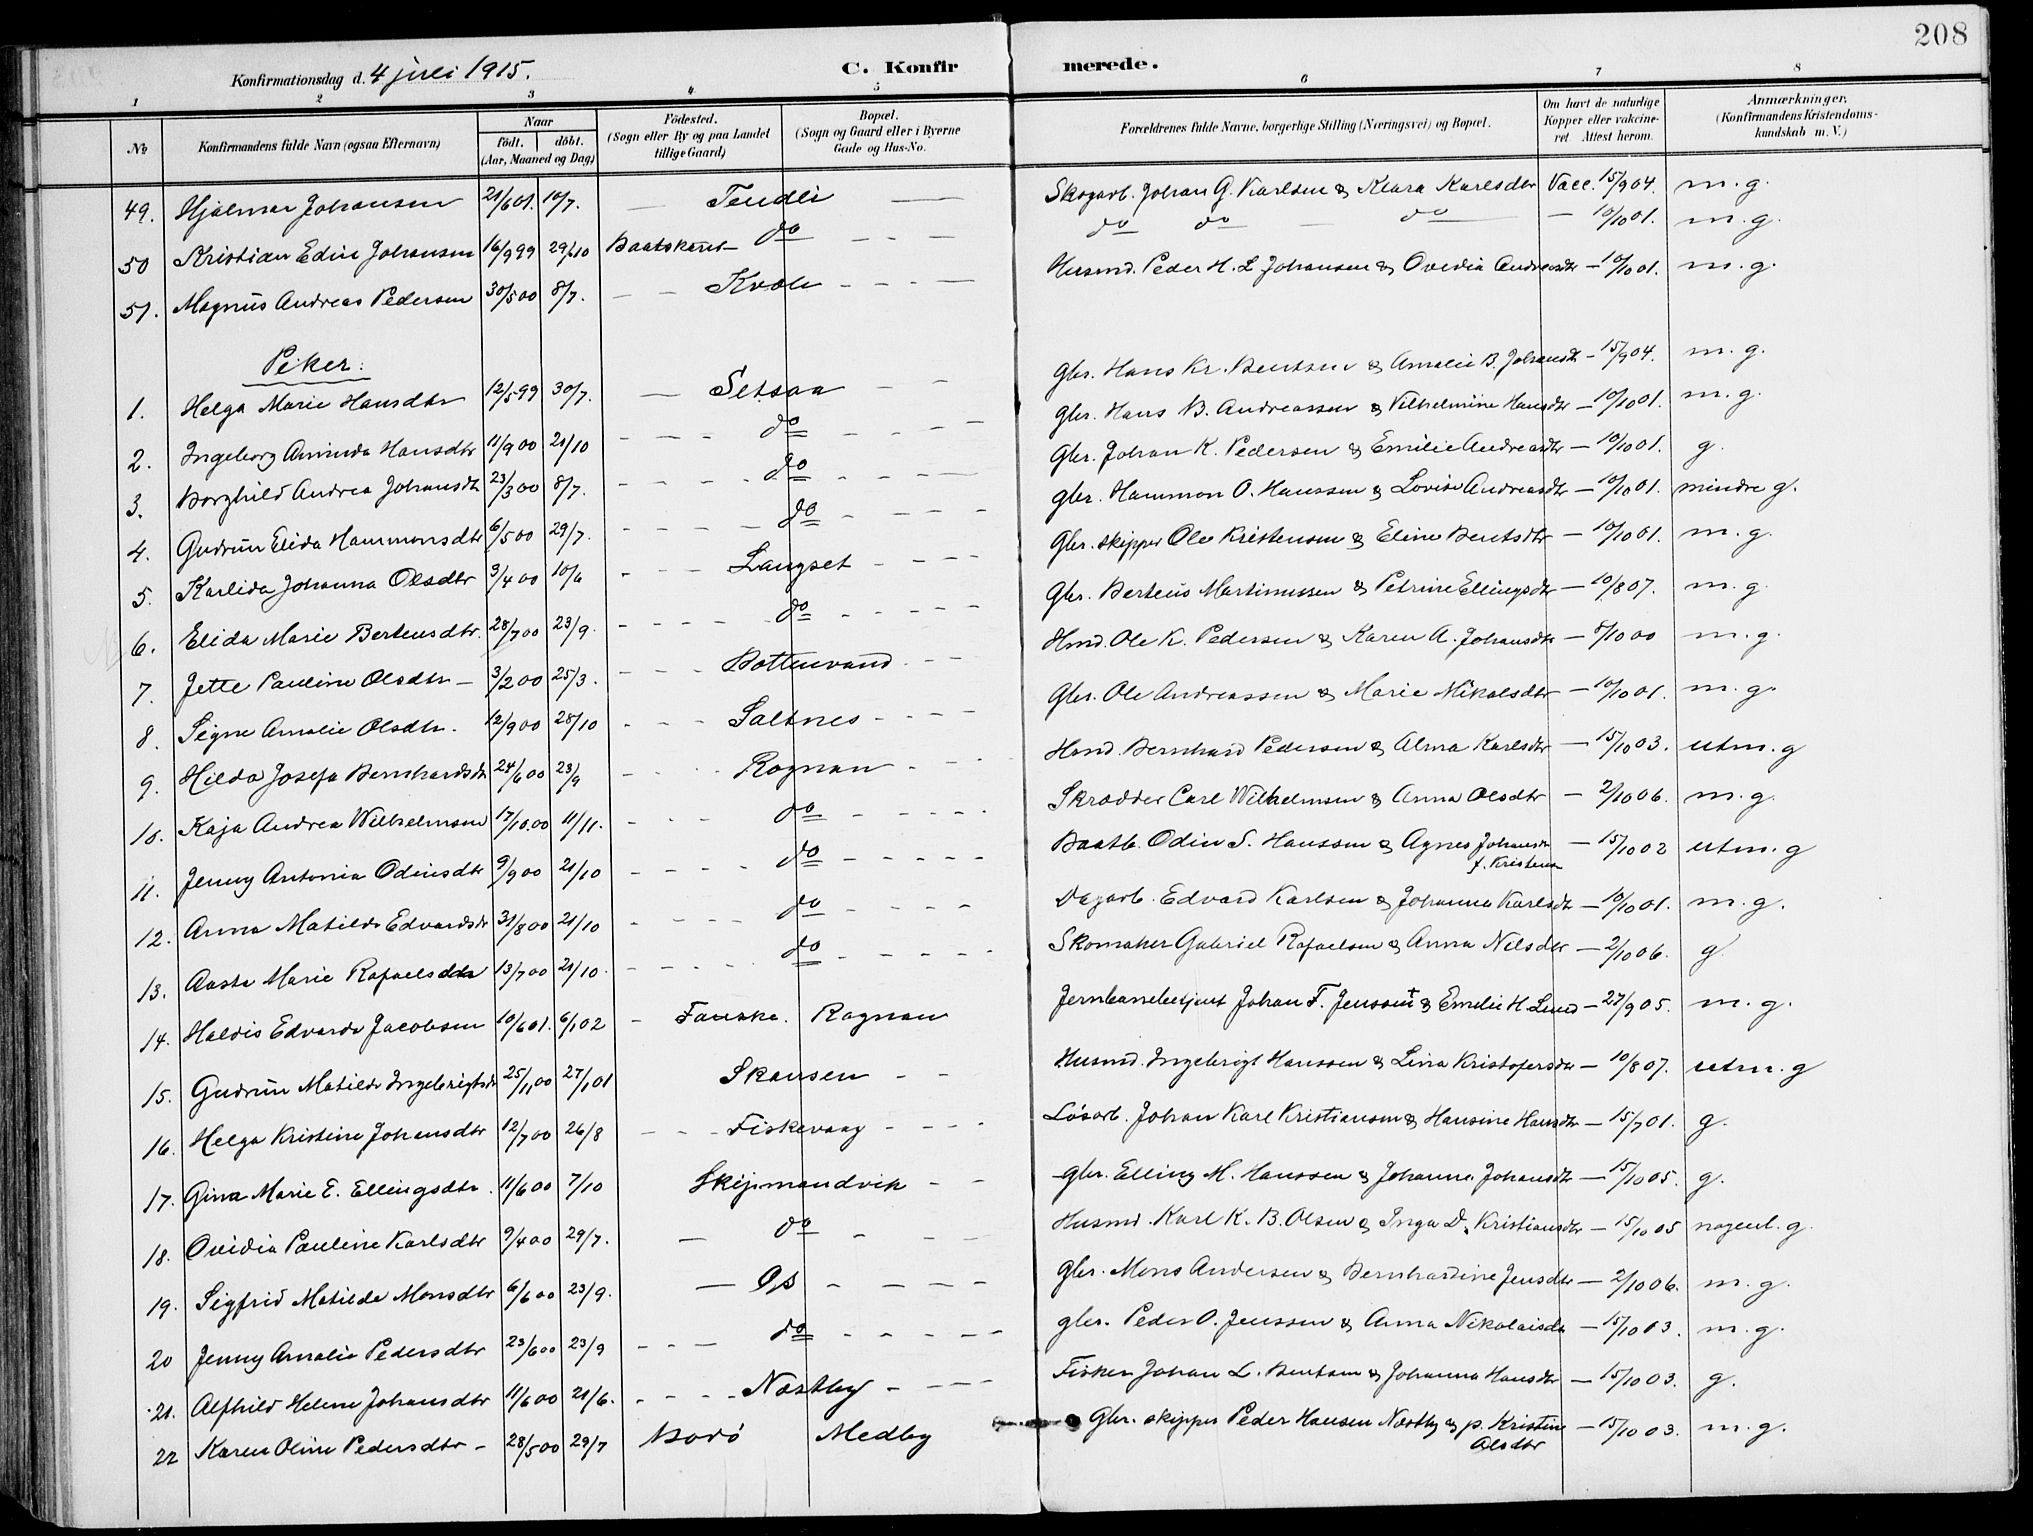 208
Konfirmationsdag d. 4 juli 1915. C. Konfirmerede.
1 2 3 4 5 6 7 8
No Konfirmandens fulde Navn (ogsaa Efternavn) Naar født. døbt. (Aar, Maaned og Dag) Fødested. (Sogn eller By og paa Landet tillige Gaard) Bopæl. (Sogn og Gaard eller i Byerne Gade og Hus-No. Forældrenes fulde Navne, borgerlige Stilling (Næringsvei) og Bopæl. Om havt de naturlige Kopper eller vakcineret. Attest herom. Anmærkninger. (Konfirmandens Kristendomskundskab m. V.)
49. Hjalmar Johansen 21/6 01. 10/7. — Tendli — Skogarb. Johan G. Karlsen & Klara Karlsdtr Vacc. 15/9 04. m. g.
50 Kristian Edin Johansen 16/9 99 29/10 Baatskaret do — — — do do — do — 10/10 01. m. g.
51. Magnus Andreas Pedersen 30/5 00 8/7. — — Kvale — — — Husmd. Peder H. L Johansen & Ovidia Andreasdtr — 10/10 01. m. g.
Piker:
1. Helga Marie Hansdtr 12/5 99 30/7. — Setsaa — — Gbr. Hans Kr. Bentsen & Amalie B. Johansdtr — 15/9 04. m. g.
2. Ingeborg Aminda Hansdtr 11/9 00 21/10 — — — do — — — Gbr. Hans B. Andreassen & Vilhelmine Hansdtr — 10/10 01. m. g.
3. Borghild Andrea Johansdtr 23/3 00 8/7. — — — — do — — — Gbr. Johan K. Pedersen & Emilie Andreasdtr — 10/10 01. g.
4. Gudrun Elida Hammonsdtr 6/5 00 29/7. — — — — do — — — — Gbr. Hammon O. Hanssen & Lovise Andreasdtr — 10/10 01. mindre g.
5. Karlida Johanna Olsdtr 3/4 00 10/6 — — — Langset — — — Gbr. skipper Ole Kristensen & Eline Bentsdtr — 10/10 01. m. g.
6. Elida Marie Berteusdtr. 28/7 00 23/9. — — — — do — — — — Gbr. Berteus Martinussen & Petrine Ellingsdtr — 10/8 07. m. g
7. Jette Pauline Olsdtr — 3/2 00 25/3. — — — Bottenvand. — — Hmd. Ole K. Pedersen & Karen A. Johansdtr — 8/10 00 m. g.
8. Signe Amalie Olsdtr. 12/9 00 28/10 — — — Saltnes — — — — Gbr. Ole Andreassen & Marie Mikalsdtr — 10/10 01. m. g.
9. Hilda Josefa Bernhardsdtr 24/6 00 23/9 — — — Rognan — — — Hmd. Bernhard Pedersen & Alma Karlsdtr — 15/10 03. utm. g
10. Kaja Andrea Wilhelmsen 17/10. 00 11/11. — — — do — — — — Skrædder Carl Wilhelmsen & Anna Olsdtr — 2/10 06. m. g.
11. Jenny Antonia Odinsdtr 9/9 00 21/10 — — — — do — — — — — Baatb. Odin S. Hanssen & Agnes Johansdtr f. Kristensen — 15/10 02 utm. g
12. Anna Matilde Edvardsdtr 31/8 00 21/10 — — — — do — — — — Dagarb. Edvard Karlsen & Johanna Karlsdtr — 10/10 01. m. g.
13. Aasta Marie Rafaelsdtr 13/7 00 21/10. — — — — do — — — — — Skomaker Gabriel Rafaelsen & Anna Nilsdtr — 2/10 06. g
14. Haldis Edvarda Jacobsen 10/6 01. 6/1 02 — Fauske. Rognan Jernbanebetjent Johan F. Jenssen † & Emilie H. Lund — 27/9 05. m. g.
15. Gudrun Matilde Ingebrigtsdtr 25/11 00 27/1 01 Skansen — — Husmd. Ingebrigt Hanssen & Lina Kristofersdtr — 10/8 07. utm. g
16. Helga Kristine Johansdtr 12/7 00 26/8 — — — Fiskevaag — — — — Løsarb. Johan Karl Kristiansen & Hansine Hansdtr — 15/7 01. g.
17. Gina Marie E. Ellingsdtr. 11/6 00 7/10 Skipmandvik — — gbr. Elling M. Hanssen & Johanna Johansdtr — 15/10 05. g.
18. Ovidia Pauline Karlsdtr 9/4 00 29/7. — do — — — Husmd. Karl K. B. Olsen & Inga D. Kristiansdtr — 15/10 05 nogenl. g.
19. Sigfrid Matilde Monsdtr 6/6 00 23/9. — Os — — — — Gbr. Mons Andersen & Bernhardine Jensdtr — 2/10 06. m. g.
20 Jenny Amalie Pedersdtr 23/6 00 23/9 — — — do — — — — gbr. Peder O. Jenssen & Anna Nikolaisdtr — 15/10 03. m. g.
21. Alfhild Helene Johansdtr 11/6 00 21/6. — — — — Næstby — — — — Fisker Johan L. Bentsen & Johanna Hansdtr — 15/10 03. g.
22 Karen Oline Pedersdtr — 28/5 00 29/7 Bodø Medby Gbr. skipper Peder Hansen Næstby & p. Kristine Olsdtr — 15/10 03. m. g.